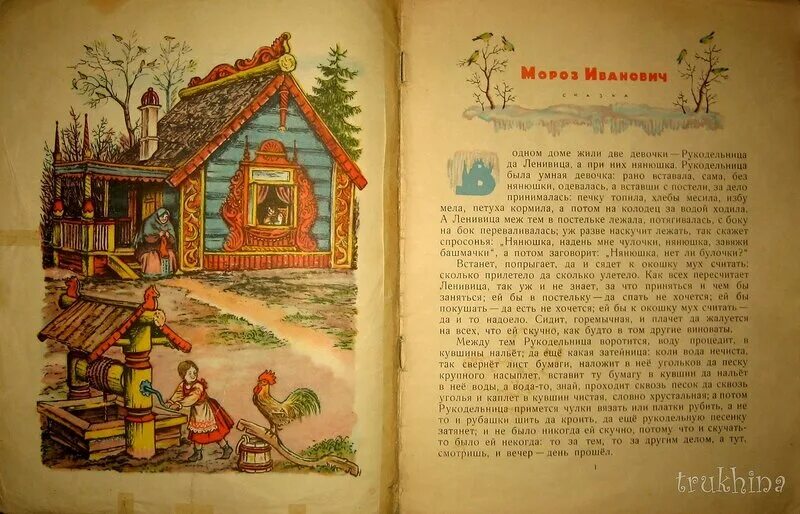 Мороз Иванович
СКАЗКА
В одном доме жили две девочки — Рукодельница
да Ленивица, а при них нянюшка. Рукодельница
была умная девочка: рано вставала, сама, без
нянюшки, одевалась, а вставши с постели, за дело
принималась: печку топила, хлебы месила, избу
мела, петуха кормила, а потом на колодец за водой ходила.
А Ленивица меж тем в постельке лежала, потягивалась, с боку
на бок переваливалась; уж разве наскучит лежать, так скажет
спросонья: „Нянюшка, надень мне чулочки, нянюшка, завяжи
башмачки“, а потом заговорит: „Нянюшка, нет ли булочки?“
Встанет, попрыгает, да и сядет к окошку мух считать:
сколько прилетело да сколько улетело. Как всех пересчитает
Ленивица, так уж и не знает, за что приняться и чем бы
заняться; ей бы в постельку — да спать не хочется; ей бы
покушать — да есть не хочется; ей бы к окошку мух считать —
да и то надоело. Сидит, горемычная, и плачет да жалуется
на всех, что ей скучно, как будто в том другие виноваты.
Между тем Рукодельница воротится, воду процедит, в
кувшины нальёт; да ещё какая затейница: коли вода нечиста,
так свернёт лист бумаги, наложит в неё угольков да песку
крупного насыплет, вставит ту бумагу в кувшин да нальёт
в неё воды, а вода-то, знай, проходит сквозь песок да сквозь
уголья и каплет в кувшин чистая, словно хрустальная; а потом
Рукодельница примется чулки вязать или платки рубить, а не
то и рубашки шить да кроить, да ещё рукодельную песенку
затянет; и не было никогда ей скучно, потому что и скучать-
то было ей некогда: то за тем, то за другим делом, а тут,
смотришь, и вечер — день прошёл.
1
trukhina